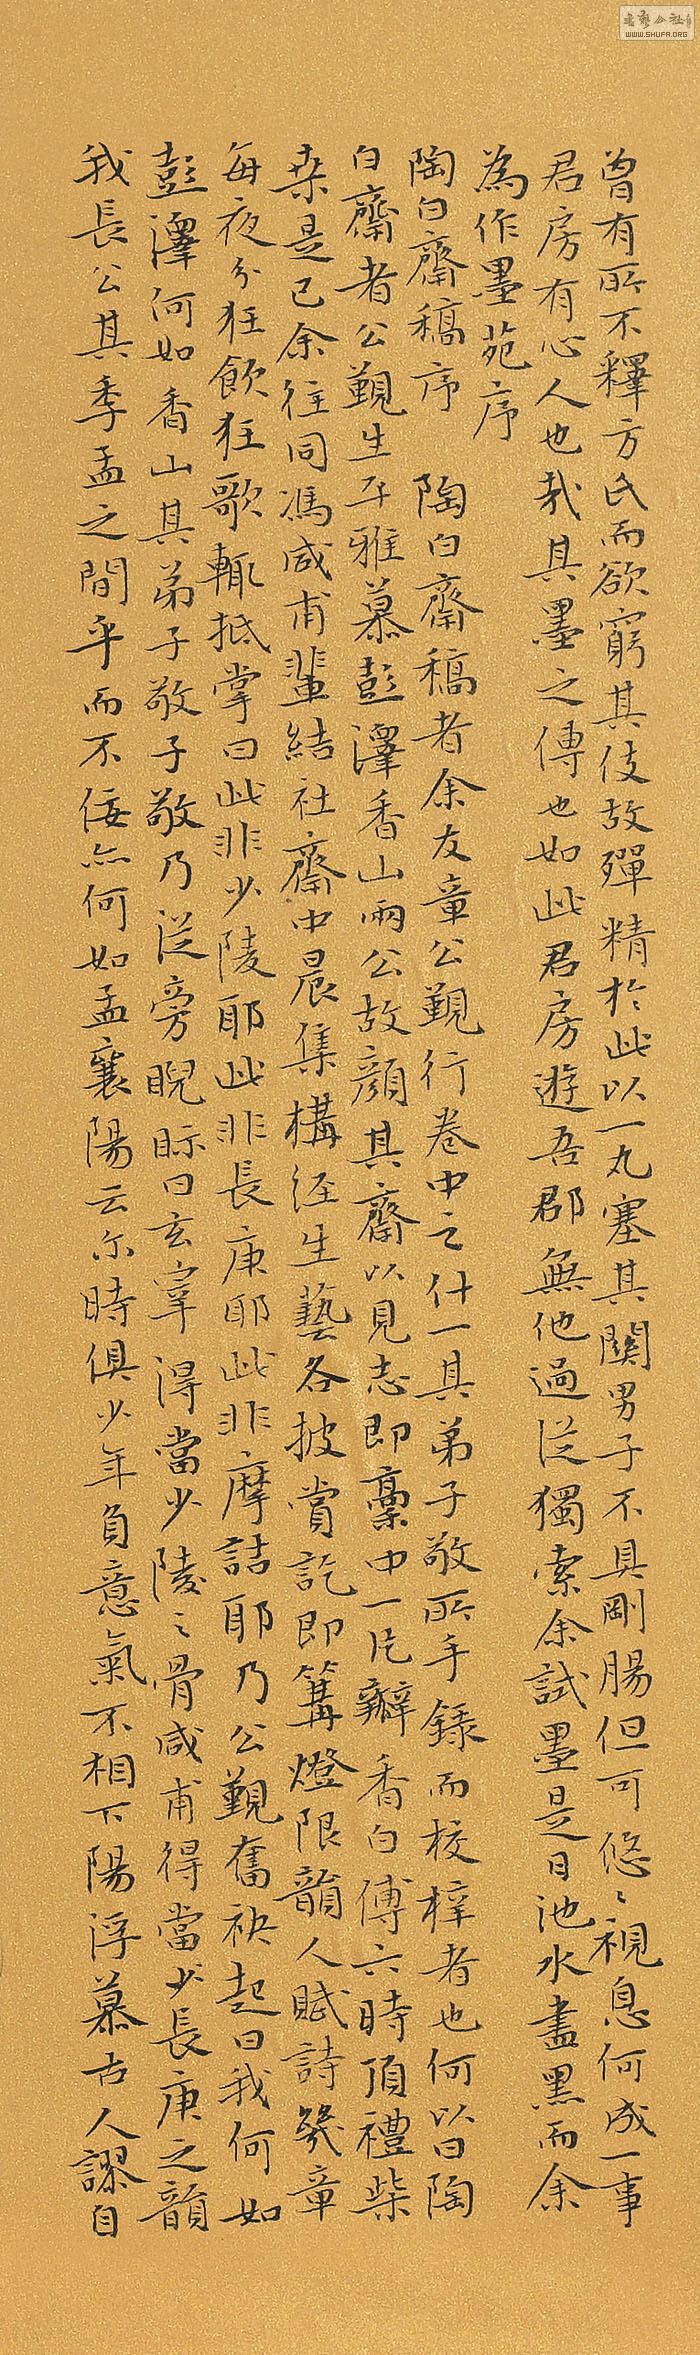 曾有所不釋方氏而欲窮其伎故殫精於此以一丸塞其關男子不具剛腸但可悠〻視息何成一事
君房有心人也哉其墨之傳也如此君房遊吾郡無他過從獨索余試墨是日池水盡黑而余
為作墨苑序
陶白齋稿序 陶白齋稿者余友章公覲行卷中之什一其弟子敬所手錄而校梓者也何以曰陶
白齋者公覲生平雅慕彭澤香山兩公故顏其齋以見志即稾中一瓣香白傅六時頂禮柴
桑是已余往同馮咸甫輩結社齋中晨集構經生藝各披賞訖即篝燈限韻人賦詩幾章
每夜分狂飲狂歌輒抵掌曰此非少陵耶此非長庚耶此非摩詰耶乃公覲奮袂起曰我何如
彭澤何如香山其弟子敬子敬乃從旁睨眎曰玄宰得當少陵〻骨咸甫得當少長庚之韻
我長公其季孟之間乎而不佞亦何如孟襄陽云尔時俱少年負意氣不相下陽浮慕古人謬自
書藝公社
WWW.SHUFA.ORG